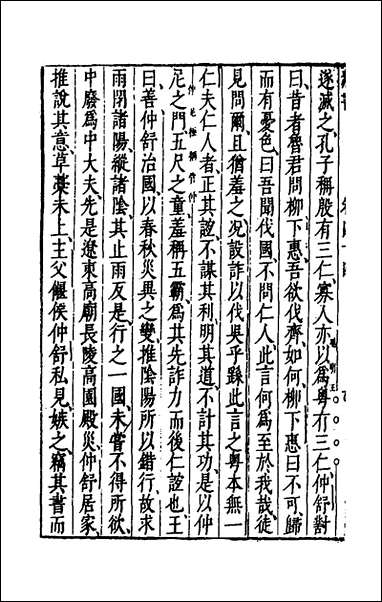 遂滅之、孔子稱殷有三仁、寡人亦以爲粤有三仁、仲舒對
曰、昔者魯君問柳下惠、吾欲伐齊、如何、柳下惠曰不可、歸
而有憂色、曰吾聞伐國、不問仁人、此言何爲至於我哉、徒
見問爾、且猶羞之、況設詐以伐吳乎、繇此言之、粤本無一
仁、夫仁人者、正其誼不謀其利、明其道、不計其功、是以仲
尼之門、五尺之童、羞稱五霸、爲其先詐力而後仁誼也、王
曰、善、仲舒治國、以春秋災異之變、推陰陽所以錯行、故求
雨閉諸陽、縱諸陰、其止雨反是、行之一國、未嘗不得所欲、
中廢爲中大夫、先是遼東高廟、長陵高園殿災、仲舒居家、
推說其意、草藁未上、主父偃候仲舒、私見嫉之、竊其書而